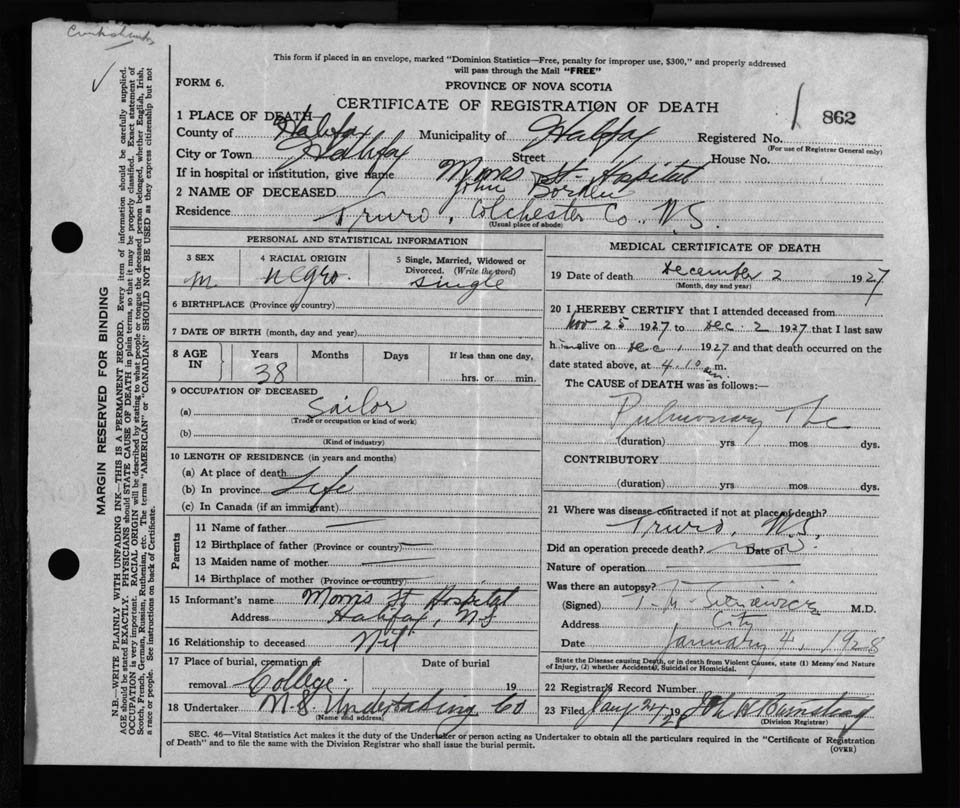 This form if placed in an envelope, marked "Dominion Statistics—Free, penalty for improper use, $300," and properly addressed
will pass through the Mail "FREE"
FORM 6.
PROVINCE OF NOVA SCOTIA
CERTIFICATE OF REGISTRATION OF DEATH
862
1 PLACE OF DEATH—
County of Halifax Municipality of Halifax Registered No.
(For use of Registrar General only)
City or Town Halifax Street House No.
If in hospital or institution, give name Morris St Hospital
2 NAME OF DECEASED John Borden
Residence Truro, Colchester Co., N.S.
(Usual place of abode)
PERSONAL AND STATISTICAL INFORMATION
3 SEX
M
4 RACIAL ORIGIN
negro.
5 Single, Married, Widowed or Divorced. (Write the word)
single
6 BIRTHPLACE (Province or country)
7 DATE OF BIRTH (month, day and year)
8 AGE IN Years Months Days If less than one day,
38 hrs. or min.
9 OCCUPATION OF DECEASED
(a) Sailor
(Trade or occupation or kind of work)
(b)
(Kind of industry)
10 LENGTH OF RESIDENCE (in years and months)
(a) At place of death
(b) In province Life
(c) In Canada (if an immigrant)
Parents
11 Name of father
12 Birthplace of father (Province or country)
13 Maiden name of mother
14 Birthplace of mother (Province or country)
15 Informant's name Morris St Hospital
Address Halifax, N.S
16 Relationship to deceased Nil
17 Place of burial, cremation or Date of burial
removal College 19
18 Undertaker N.S. Undertaking Co
(Name and address)
MEDICAL CERTIFICATE OF DEATH
19 Date of death December 2 1927
(Month, day and year)
20 I HEREBY CERTIFY that I attended deceased from
Nov 25 1927 to Dec. 2 1927 that I last saw
him alive on Dec 1 1927 and that death occurred on the
date stated above, at 4.10 m.
The CAUSE of DEATH was as follows:—
Pulmonary Tbc
(duration) yrs mos dys.
CONTRIBUTORY
(duration) yrs mos dys.
21 Where was disease contracted if not at place of death?
Truro, N.S.
Did an operation precede death? Date of
Nature of operation
Was there an autopsy?
(Signed) M.D.
Address City
Date January 4, 1928
State the Disease causing Death, or in death from Violent Causes, state (1) Means and Nature
of Injury, (2) whether Accidental, Suicidal or Homicidal.
22 Registrar's Record Number
23 Filed 19 28
(Division Registrar)
SEC. 46—Vital Statistics Act makes it the duty of the Undertaker or person acting as Undertaker to obtain all the particulars required in the "Certificate of Registration
of Death" and to file the same with the Division Registrar who shall issue the burial permit.
(OVER)
MARGIN RESERVED FOR BINDING
N.B.—WRITE PLAINLY WITH UNFADING INK—THIS IS A PERMANENT RECORD. Every item of information should be carefully supplied.
AGE should be stated EXACTLY. PHYSICIANS should STATE CAUSE OF DEATH in plain terms, so that it may be properly classified. Exact statement of
OCCUPATION is very important. RACIAL ORIGIN will be described by stating to what people or tongue the deceased person belonged, whether English, Irish,
Scotch, French, German, Russian, Ruthenian, etc. The terms "AMERICAN" or "CANADIAN" SHOULD NOT BE USED as they express citizenship but not
a race or people. See instructions on back of Certificate.